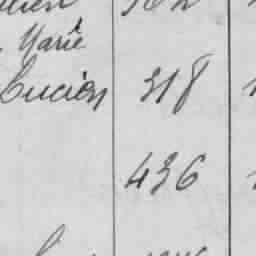 Marie
Lucien 318
436